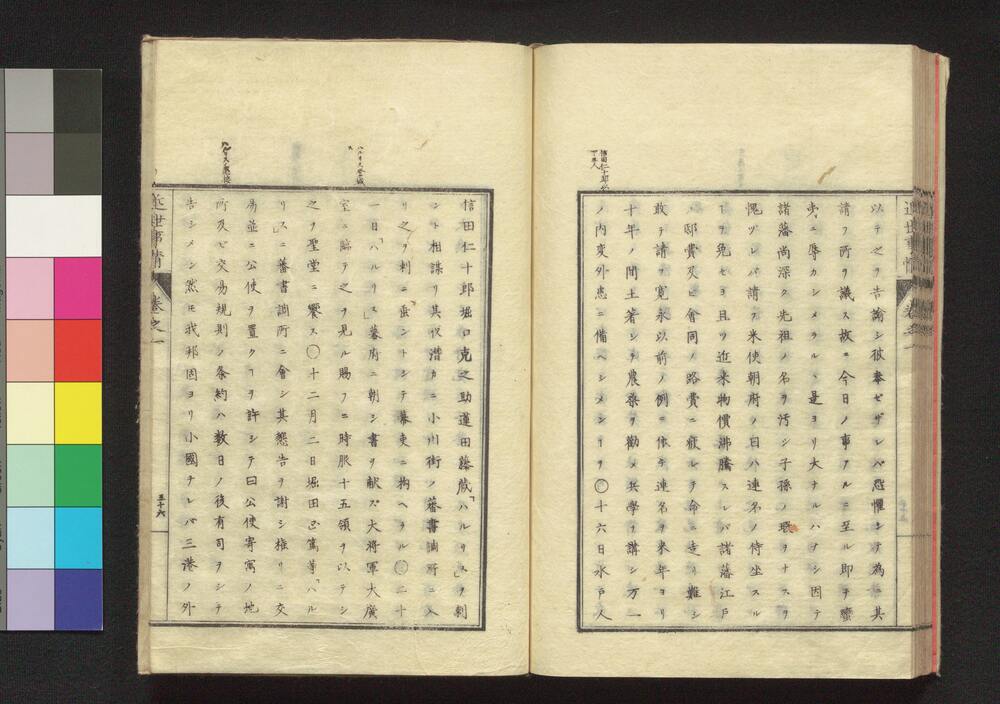 以テ之ヲ告諭シ彼奉ゼザレバ恐懼シテ為ニ其
請フ所ヲ議ス故ニ今日ノ事アルニ至ル即チ蠻
夷ニ辱カシメラルヽ是ヨリ大ナルハナシ因テ
諸藩尚深ク先祖ノ名ヲ汚シ子孫ノ瑕ヲナスヲ
愧ヅレバ請フ米使朝府ノ日ハ連名ノ侍坐スル
ヿヲ免セヨ且ツ近来物價沸騰スレバ諸藩江戸
ノ邸費及ビ會同ノ路費ニ疲レテ命ニ走リ難シ
敢テ請フ寛永以前ノ例ニ依テ連名ヲ来年ヨリ
十年ノ間土著シテ農桑ヲ勸メ兵學ヲ講シ万一
ノ内変外患ニ備ヘシメンヿヲ〇十六日水戸人
信田仁十郎等
丁未人
近世事情
巻之一
信田仁十郎堀口克之助蓮田藤蔵「ハルリス」ヲ刺
ント相謀リ其仗潜カニ小川街ノ蕃書調所ニ入
リ之ヲ刺ニ垂ントシテ幕吏ニ拘ヘラル〇二十
一日「ハルリス」幕府ニ朝シ書ヲ献ズ大將軍大廣
室ニ臨テ之ヲ見ル賜フニ時服十五領ヲ以テシ
之ヲ聖堂ニ饗ス〇十二月二日堀田正篤等「ハル
リス」ニ蕃書調所ニ會シ其懇告ヲ謝シ権リニ交
易並ニ公使ヲ置クヿヲ許シテ曰公使寄寓ノ地
所及ビ交易規則ノ条約ハ数日ノ後有司ヲシテ
告シメン然モ我邦固ヨリ小國ナレバ三港ノ外
ハルリス登城
近世事情
巻之一
五十六